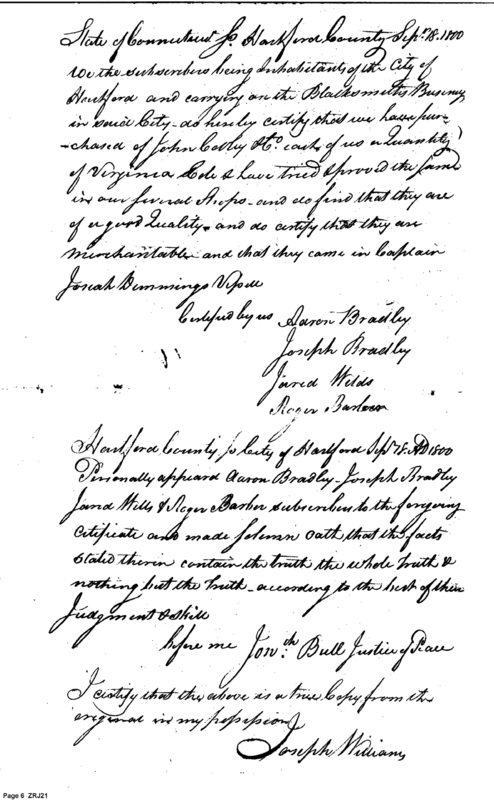 State of Connecticut Ss. Hartford County Sept. 18. 1800
We the subscribers being Inhabitants of the City of
Hartford and carrying on the Blacksmiths Business
in said City - do hereby certify that we have pur-
-chased of John Colley & Co. each of us a Quantity
of Virginia Cole & have tried & proved the same
in our several Shops - and do find that they are
of a good Quality - and do certify that they are
Merchantable - and that they came in Captain
Josiah Hemmings Vessell
Certifed by us Aaron Bradley
Joseph Bradley
Jared Wells
Roger Barber
Hartford County Ss City of Hartford Sept. 18. AD 1800
Personally appeard Aaron Bradley - Joseph Bradley
Jared Wells & Roger Barber subscribers to the foregoing
Cetificate and made Solemn oath that the facts
stated therein contain the truth the whole truth &
nothing but the truth - according to the best of their
Judgment & skill
before me Jonth. Bull Justice of Peace
I certify that the above is a true Copy from the
original in my possession
Joseph Williams
Page 6 ZRJ21